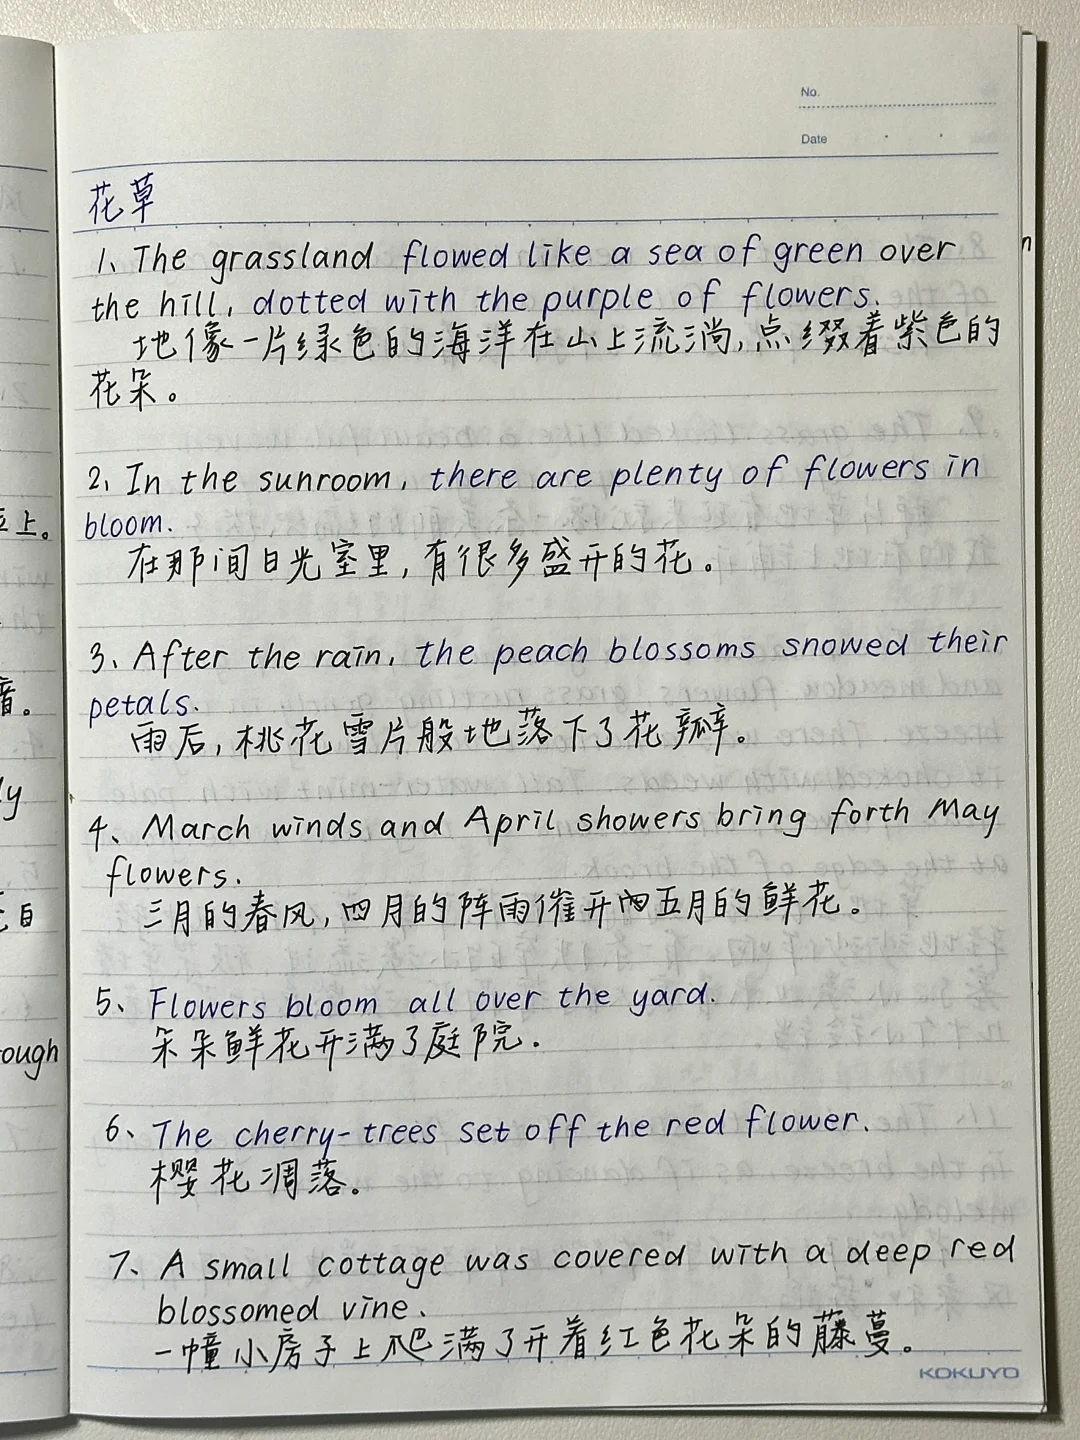 No.
Date
花草
1、The grassland flowed like a sea of green over
the hill, dotted with the purple of flowers.
地像一片绿色的海洋在山上流淌,点缀着紫色的
花朵。
2、In the sunroom, there are plenty of flowers in
bloom.
在那间日光室里,有很多盛开的花。
3、After the rain, the peach blossoms snowed their
petals.
雨后,桃花雪片般地落下了花瓣。
4、March winds and April showers bring forth May
flowers.
三月的春风,四月的阵雨催开五月的鲜花。
5、Flowers bloom all over the yard.
朵朵鲜花开满了庭院.
6、The cherry-trees set off the red flower.
樱花凋落。
7、A small cottage was covered with a deep red
blossomed vine.
一幢小房子上爬满了开着红色花朵的藤蔓。
KOKUYO
上。
音。
ly
自
ough
n